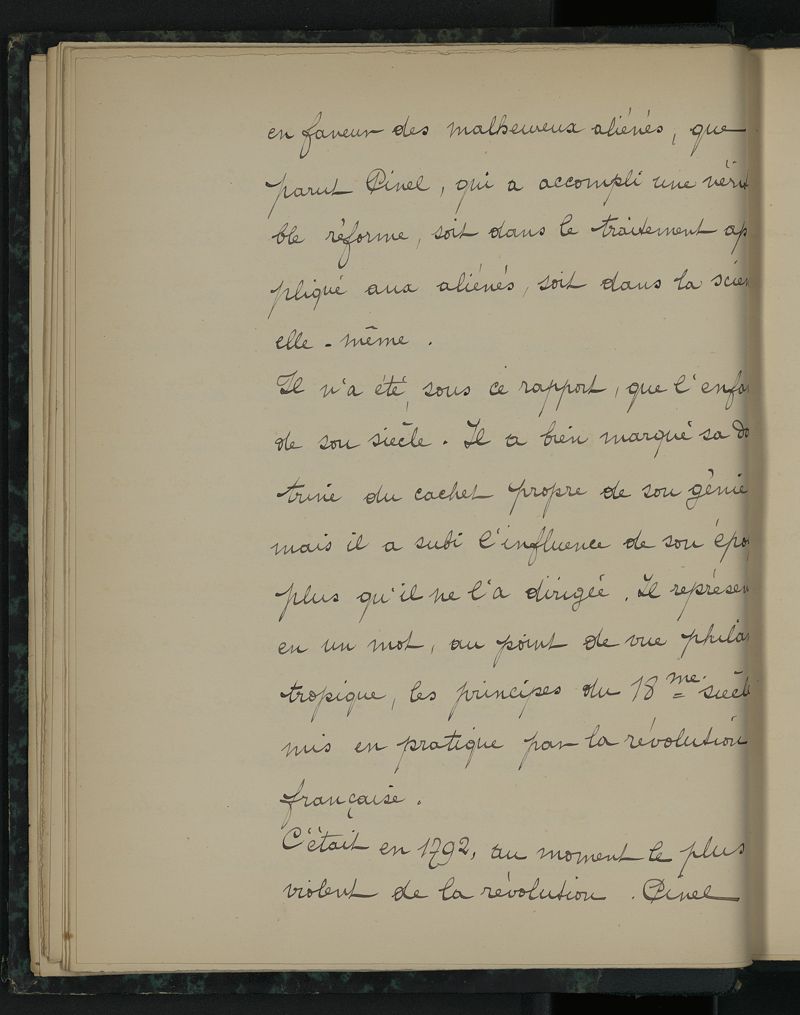 en faveur des malheureux aliénés, que
parut Pinel, qui a accompli une vérit
ble réforme, soit dans le traitement ap
pliqué aux aliénés, soit dans la scien
elle-même.
Il n'a été, sous ce rapport, que l'enfa
de son siècle. Il a bien marqué sa do
trine du cachet propre de son génie
mais il a subi l'influence de son épo
plus qu'il ne l'a dirigée. Il représen
en un mot, au point de vue philan
tropique, les principes du 18me siècl
mis en pratique par la révolution
française.
C'était en 1792, au moment le plus
violent de la révolution. Pinel